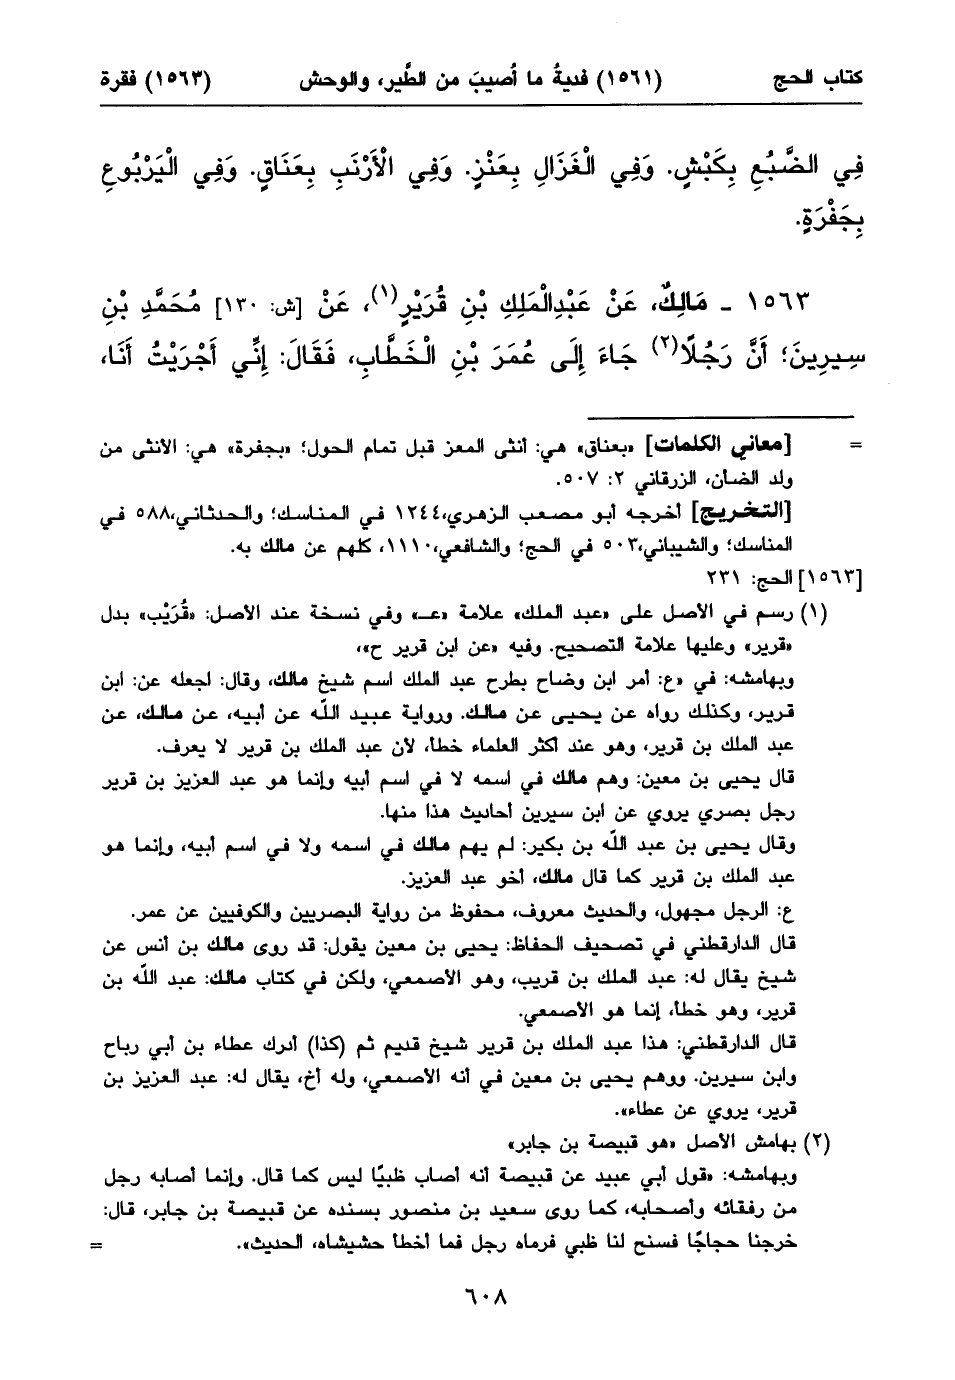 كتاب الحج (١٥٦١) فديةُ ما أُصيبَ من الطَّير، والوحش (١٥٦٣) فقرة
فِي الضَّبُعِ بِكَبْشٍ. وَفِي الْغَزَالِ بِعَنْزٍ. وَفِي الْأَرْنَبِ بِعَنَاقٍ. وَفِي الْيَرْبُوعِ
بِجَفْرَةٍ.
١٥٦٣ - مَالِكٌ، عَنْ عَبْدِالْمَلِكِ بْنِ قُرَيْرٍ(١)، عَنْ [ش: ١٣٠] مُحَمَّدِ بْنِ
سِيرِينَ؛ أَنَّ رَجُلًا(٢) جَاءَ إِلَى عُمَرَ بْنِ الْخَطَّابِ، فَقَالَ: إِنِّي أَجْرَيْتُ أَنَا،
= [معاني الكلمات] «بعناق» هي: أنثى المعز قبل تمام الحول؛ «بجفرة» هي: الأنثى من
ولد الضأن، الزرقاني ٢: ٥٠٧.
[التخريج] أخرجه أبو مصعب الزهري،١٢٤٤ في المناسك؛ والحدثاني،٥٨٨ في
المناسك؛ والشيباني،٥٠٣ في الحج؛ والشافعي،١١١٠، كلهم عن مالك به.
[١٥٦٣] الحج: ٢٣١
(١) رسم في الأصل على «عبد الملك» علامة «عـ» وفي نسخة عند الأصل: «قُرَيْب» بدل
«قرير» وعليها علامة التصحيح. وفيه «عن ابن قرير ح»،
وبهامشه: في «ع: أمر ابن وضاح بطرح عبد الملك اسم شيخ مالك، وقال: اجعله عن: ابن
قرير، وكذلك رواه عن يحيى عن مالك. ورواية عبيد الله عن أبيه، عن مالك، عن
عبد الملك بن قرير، وهو عند أكثر العلماء خطأ، لأن عبد الملك بن قرير لا يعرف.
قال يحيى بن معين: وهم مالك في اسمه لا في اسم أبيه وإنما هو عبد العزيز بن قرير
رجل بصري يروي عن ابن سيرين أحاديث هذا منها.
وقال يحيى بن عبد الله بن بكير: لم يهم مالك في اسمه ولا في اسم أبيه، وإنما هو
عبد الملك بن قرير كما قال مالك، أخو عبد العزيز.
ع: الرجل مجهول، والحديث معروف، محفوظ من رواية البصريين والكوفيين عن عمر.
قال الدارقطني في تصحيف الحفاظ: يحيى بن معين يقول: قد روى مالك بن أنس عن
شيخ يقال له: عبد الملك بن قريب، وهو الأصمعي، ولكن في كتاب مالك: عبد الله بن
قرير، وهو خطأ، إنما هو الأصمعي.
قال الدارقطني: هذا عبد الملك بن قرير شيخ قديم ثم (كذا) أدرك عطاء بن أبي رباح
وابن سيرين. ووهم يحيى بن معين في أنه الأصمعي، وله أخ، يقال له: عبد العزيز بن
قرير، يروي عن عطاء».
(٢) بهامش الأصل «هو قبيصة بن جابر»
وبهامشه: «قول أبي عبيد عن قبيصة أنه أصاب ظبيًا ليس كما قال. وإنما أصابه رجل
من رفقائه وأصحابه، كما روى سعيد بن منصور بسنده عن قبيصة بن جابر، قال:
خرجنا حجاجًا فسنح لنا ظبي فرماه رجل فما أخطأ حشيشاه، الحديث». =
٦٠٨